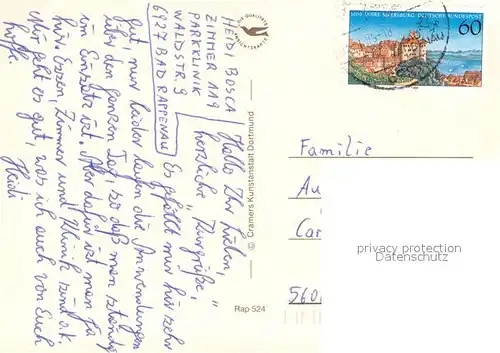 HEIDI BOSCA
ZIMMER 119
PARKKLINIK
WALDSTR. 9
6927 BAD RAPPENAU
Hallo Ihr Lieben,
herzliche "Kurgrüße".
Es gefällt mir hier sehr
gut nur leider liegen die Anwendungen
über den ganzen Tag, so daß man ständig
im Einsatz ist. Aber dafür ist man ja
hier. Essen, Zimmer und Klinik sind o.k.
Mir geht es gut, was ich auch von Euch
hoffe.
Heidi
DIE QUALITÄTS
ANSICHTSKARTE
© Cramers Kunstanstalt Dortmund
Rap 524
1000 JAHRE MEERSBURG DEUTSCHE BUNDESPOST
60
Familie
Au
Car
560
privacy protection
Datenschutz